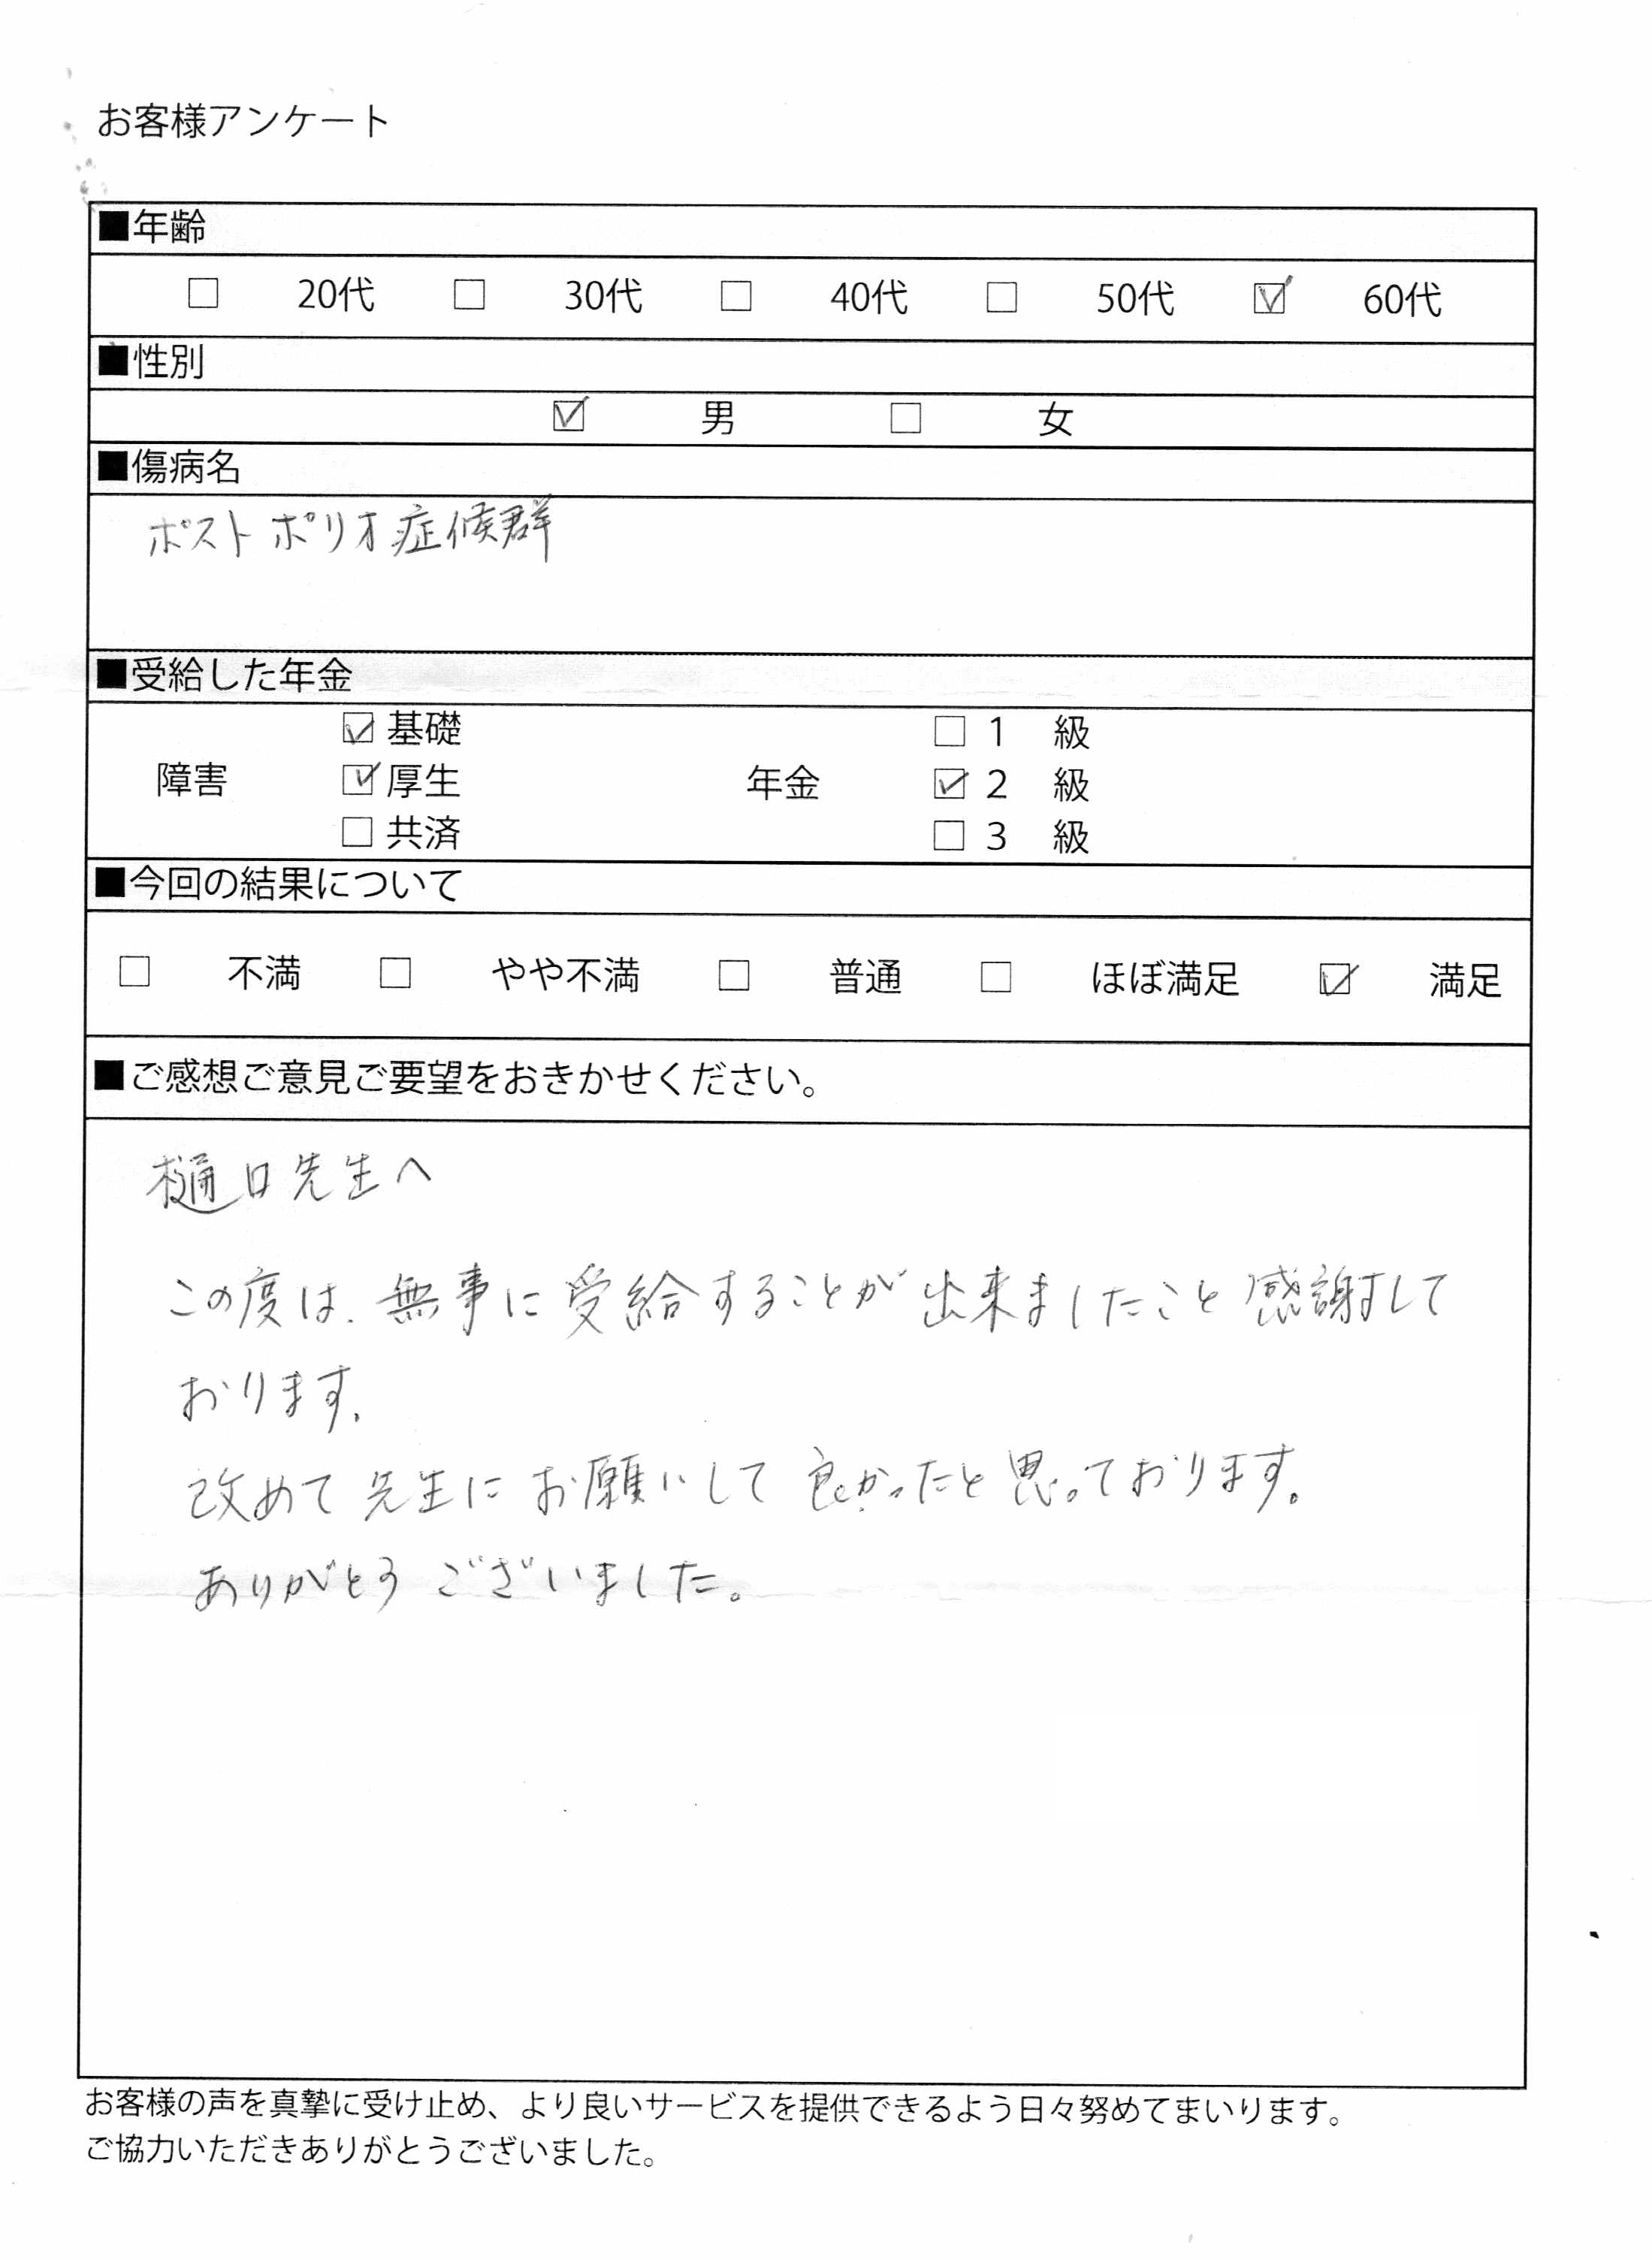 お客様アンケート
■年齢
□ 20代 □ 30代 □ 40代 □ 50代 ☑ 60代
■性別
☑ 男 □ 女
■傷病名
ポストポリオ症候群
■受給した年金
☑ 基礎 □ 1 級
障害 ☑ 厚生 年金 ☑ 2 級
□ 共済 □ 3 級
■今回の結果について
□ 不満 □ やや不満 □ 普通 □ ほぼ満足 ☑ 満足
■ご感想ご意見ご要望をおきかせください。
樋口先生へ
この度は、無事に受給することが出来ましたこと感謝して
おります。
改めて先生にお願いして良かったと思っております。
ありがとうございました。
お客様の声を真摯に受け止め、より良いサービスを提供できるよう日々努めてまいります。
ご協力いただきありがとうございました。